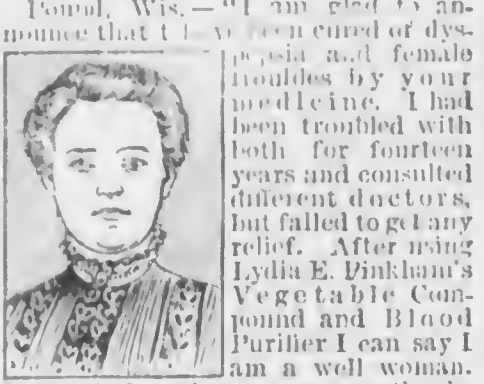 Pound, Wis.—"I am glad to an-
nounce that I have been cured of dys-
pepsia and female
troubles by your
medicine. I had
been troubled with
both for fourteen
years and consulted
different doctors,
but failed to get any
relief. After using
Lydia E. Pinkham's
Vegetable Com-
pound and Blood
Purifier I can say I
am a well woman.